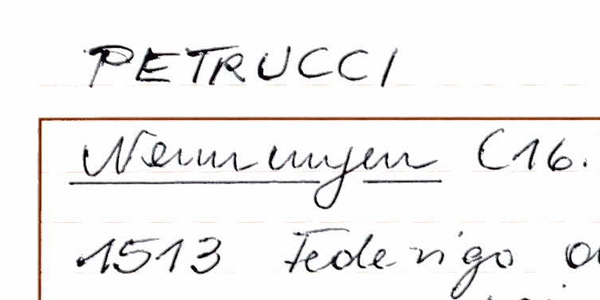 PETRUCCI
Nennungen (16.
1513 Federigo